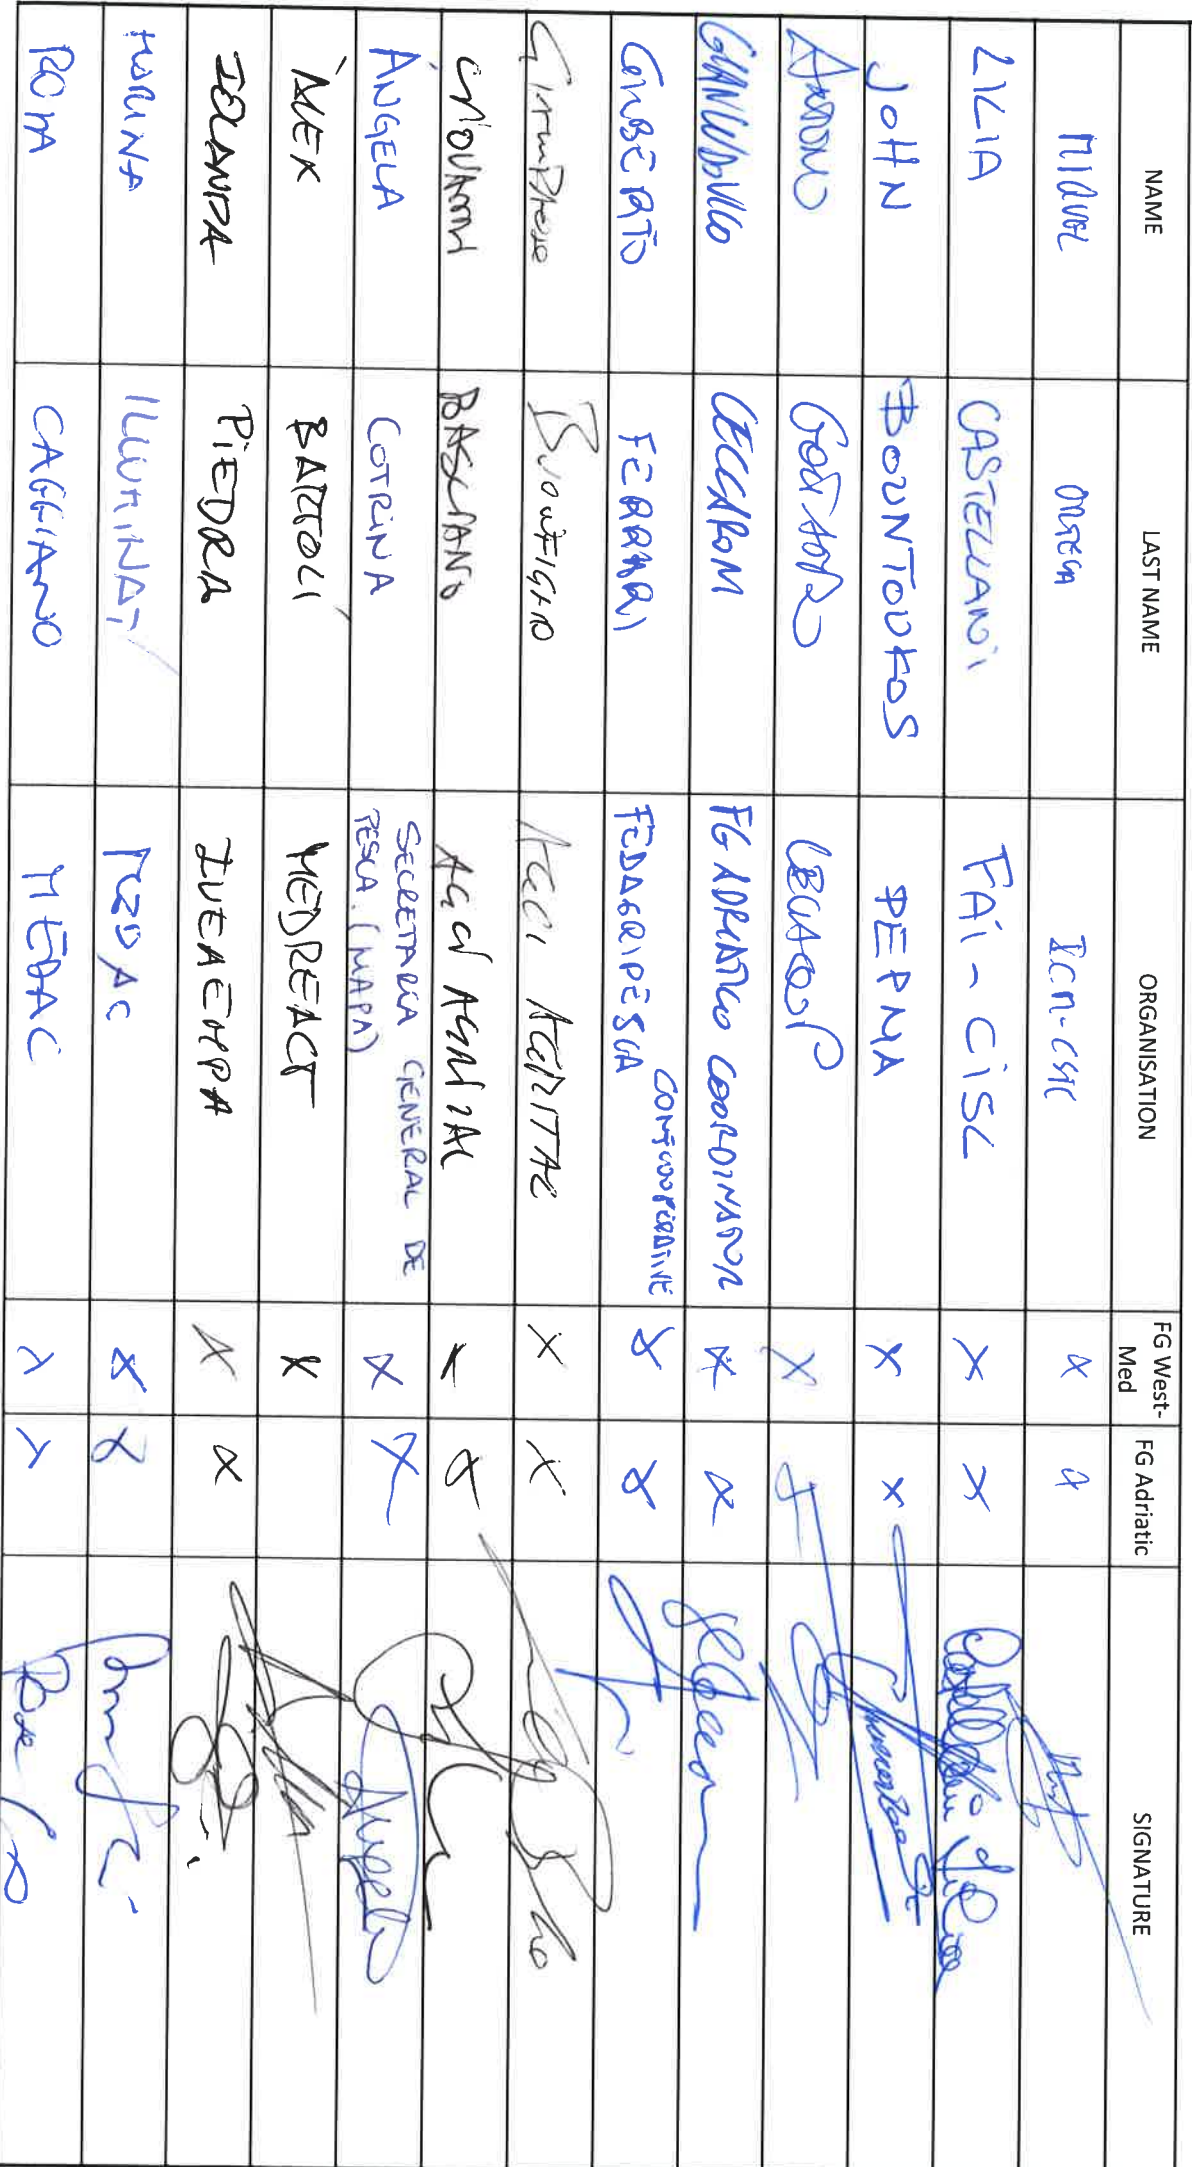 NAME LAST NAME ORGANISATION FG West-Med FG Adriatic SIGNATURE
MIQUEL ORTEGA ICM-CSIC x x
LILIA CASTELLANI FAI-CISL X X
JOHN BOUNTOUKOS PEPMA X X
GOTTARDO X
GIANLUDOVICO CECCARONI FG ADRIATICO COORDINATOR X X
GILBERTO FERRARI FEDAGRIPESCA CONFCOOPERATIVE X X
BUONFIGLIO AGCI AGRITAL X X
GIOVANNI BASCIANO AGCI AGRITAL X X
ÀNGELA COTRINA SECRETARIA GENERAL DE PESCA. (MAPA) X X
ÀLEX BARTOLÍ MEDREACT X
IOLANDA PIEDRA IVEAEMPA X X
MARINA ILLUMINATI MEDAC X X
ROSA CAGGIANO MEDAC X X